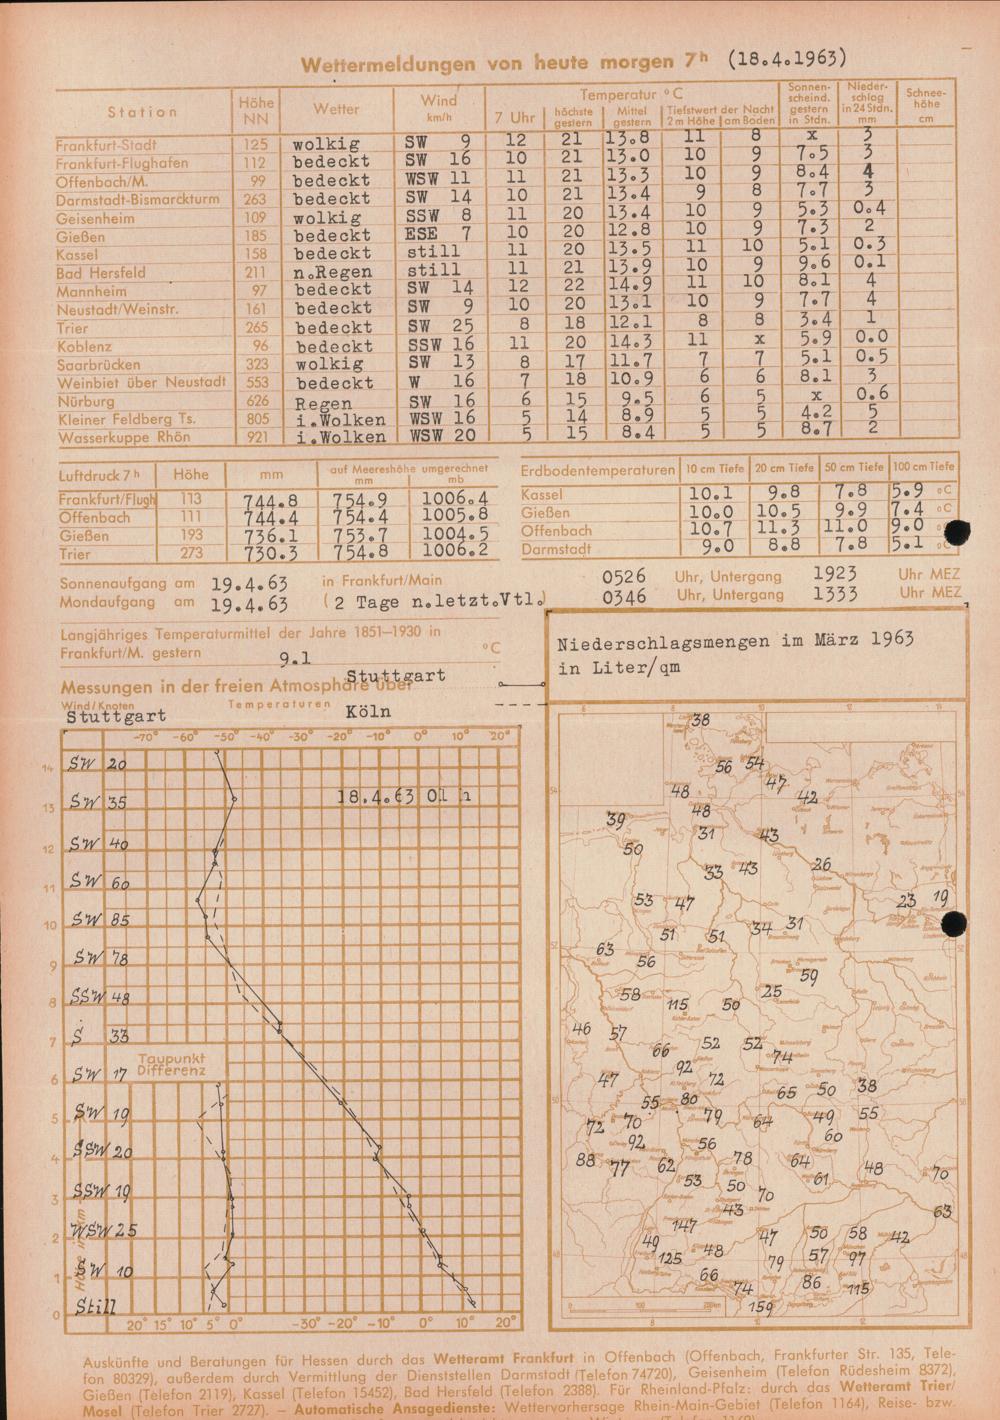 Wettermeldungen von heute morgen 7h (18.4.1963)
Station Höhe NN Wetter Wind km/h Temperatur °C 7 Uhr höchste gestern Mittel gestern Tiefstwert der Nacht 2 m Höhe am Boden Sonnen-scheind. gestern in Stdn. Nieder-schlag in 24 Stdn. mm Schnee-höhe cm
Frankfurt-Stadt 125 wolkig SW 9 12 21 13.8 11 8 x 3
Frankfurt-Flughafen 112 bedeckt SW 16 10 21 13.0 10 9 7.5 3
Offenbach/M. 99 bedeckt WSW 11 11 21 13.3 10 9 8.4 4
Darmstadt-Bismarckturm 263 bedeckt SW 14 10 21 13.4 9 8 7.7 3
Geisenheim 109 wolkig SSW 8 11 20 13.4 10 9 5.3 0.4
Gießen 185 bedeckt ESE 7 10 20 12.8 10 9 7.3 2
Kassel 158 bedeckt still 11 20 13.5 11 10 5.1 0.3
Bad Hersfeld 211 n.Regen still 11 21 13.9 10 9 9.6 0.1
Mannheim 97 bedeckt SW 14 12 22 14.9 11 10 8.1 4
Neustadt/Weinstr. 161 bedeckt SW 9 10 20 13.1 10 9 7.7 4
Trier 265 bedeckt SW 25 8 18 12.1 8 8 3.4 1
Koblenz 96 bedeckt SSW 16 11 20 14.3 11 x 5.9 0.0
Saarbrücken 323 wolkig SW 13 8 17 11.7 7 7 5.1 0.5
Weinbiet über Neustadt 553 bedeckt W 16 7 18 10.9 6 6 8.1 3
Nürburg 626 Regen SW 16 6 15 9.5 6 5 x 0.6
Kleiner Feldberg Ts. 805 i.Wolken WSW 16 5 14 8.9 5 5 4.2 5
Wasserkuppe Rhön 921 i.Wolken WSW 20 5 15 8.4 5 5 8.7 2
Luftdruck 7h Höhe mm auf Meereshöhe umgerechnet mm mb
Frankfurt/Flugh 113 744.8 754.9 1006.4
Offenbach 111 744.4 754.4 1005.8
Gießen 193 736.1 753.7 1004.5
Trier 273 730.3 754.8 1006.2
Erdbodentemperaturen 10 cm Tiefe 20 cm Tiefe 50 cm Tiefe 100 cm Tiefe
Kassel 10.1 9.8 7.8 5.9 °C
Gießen 10.0 10.5 9.9 7.4 °C
Offenbach 10.7 11.3 11.0 9.0 °
Darmstadt 9.0 8.8 7.8 5.1 °C
Sonnenaufgang am 19.4.63 in Frankfurt/Main 0526 Uhr, Untergang 1923 Uhr MEZ
Mondaufgang am 19.4.63 (2 Tage n.letzt.Vtl.) 0346 Uhr, Untergang 1333 Uhr MEZ
Langjähriges Temperaturmittel der Jahre 1851–1930 in
Frankfurt/M. gestern 9.1 °C
Messungen in der freien Atmosphäre über Stuttgart
Wind/Knoten Temperaturen
Stuttgart Köln
-70° -60° -50° -40° -30° -20° -10° 0° 10° 20°
14 SW 20
13 SW 35 18.4.63 01 h
12 SW 40
11 SW 60
10 SW 85
9 SW 78
8 SSW 48
7 S 33
Taupunkt
Differenz
6 SW 17
5 SW 19
4 SSW 20
3 SSW 19
2 WSW 25
1 SW 10
0 Still
20° 15° 10° 5° 0° -30° -20° -10° 0° 10° 20°
Niederschlagsmengen im März 1963
in Liter/qm
38
56 54
47
48 42
48
39 31 43
50
33 43 26
53 47 23 19
51 51 34 31
63 56
59
58 115 50 25
46 57
66 52 52 74
92
47 72 65 50 38
55 80
72 70 79 64 49 55
92 56 60
88 77 62 78 64 48
53 61 70
50 70
43 63
147
49 47 50 58 42
125 48 79 57 97
66 74 86 115
159
Auskünfte und Beratungen für Hessen durch das Wetteramt Frankfurt in Offenbach (Offenbach, Frankfurter Str. 135, Tele-
fon 80329), außerdem durch Vermittlung der Dienststellen Darmstadt (Telefon 74720), Geisenheim (Telefon Rüdesheim 8372),
Gießen (Telefon 2119), Kassel (Telefon 15452), Bad Hersfeld (Telefon 2388). Für Rheinland-Pfalz: durch das Wetteramt Trier/
Mosel (Telefon Trier 2727). – Automatische Ansagedienste: Wettervorhersage Rhein-Main-Gebiet (Telefon 1164), Reise- bzw.